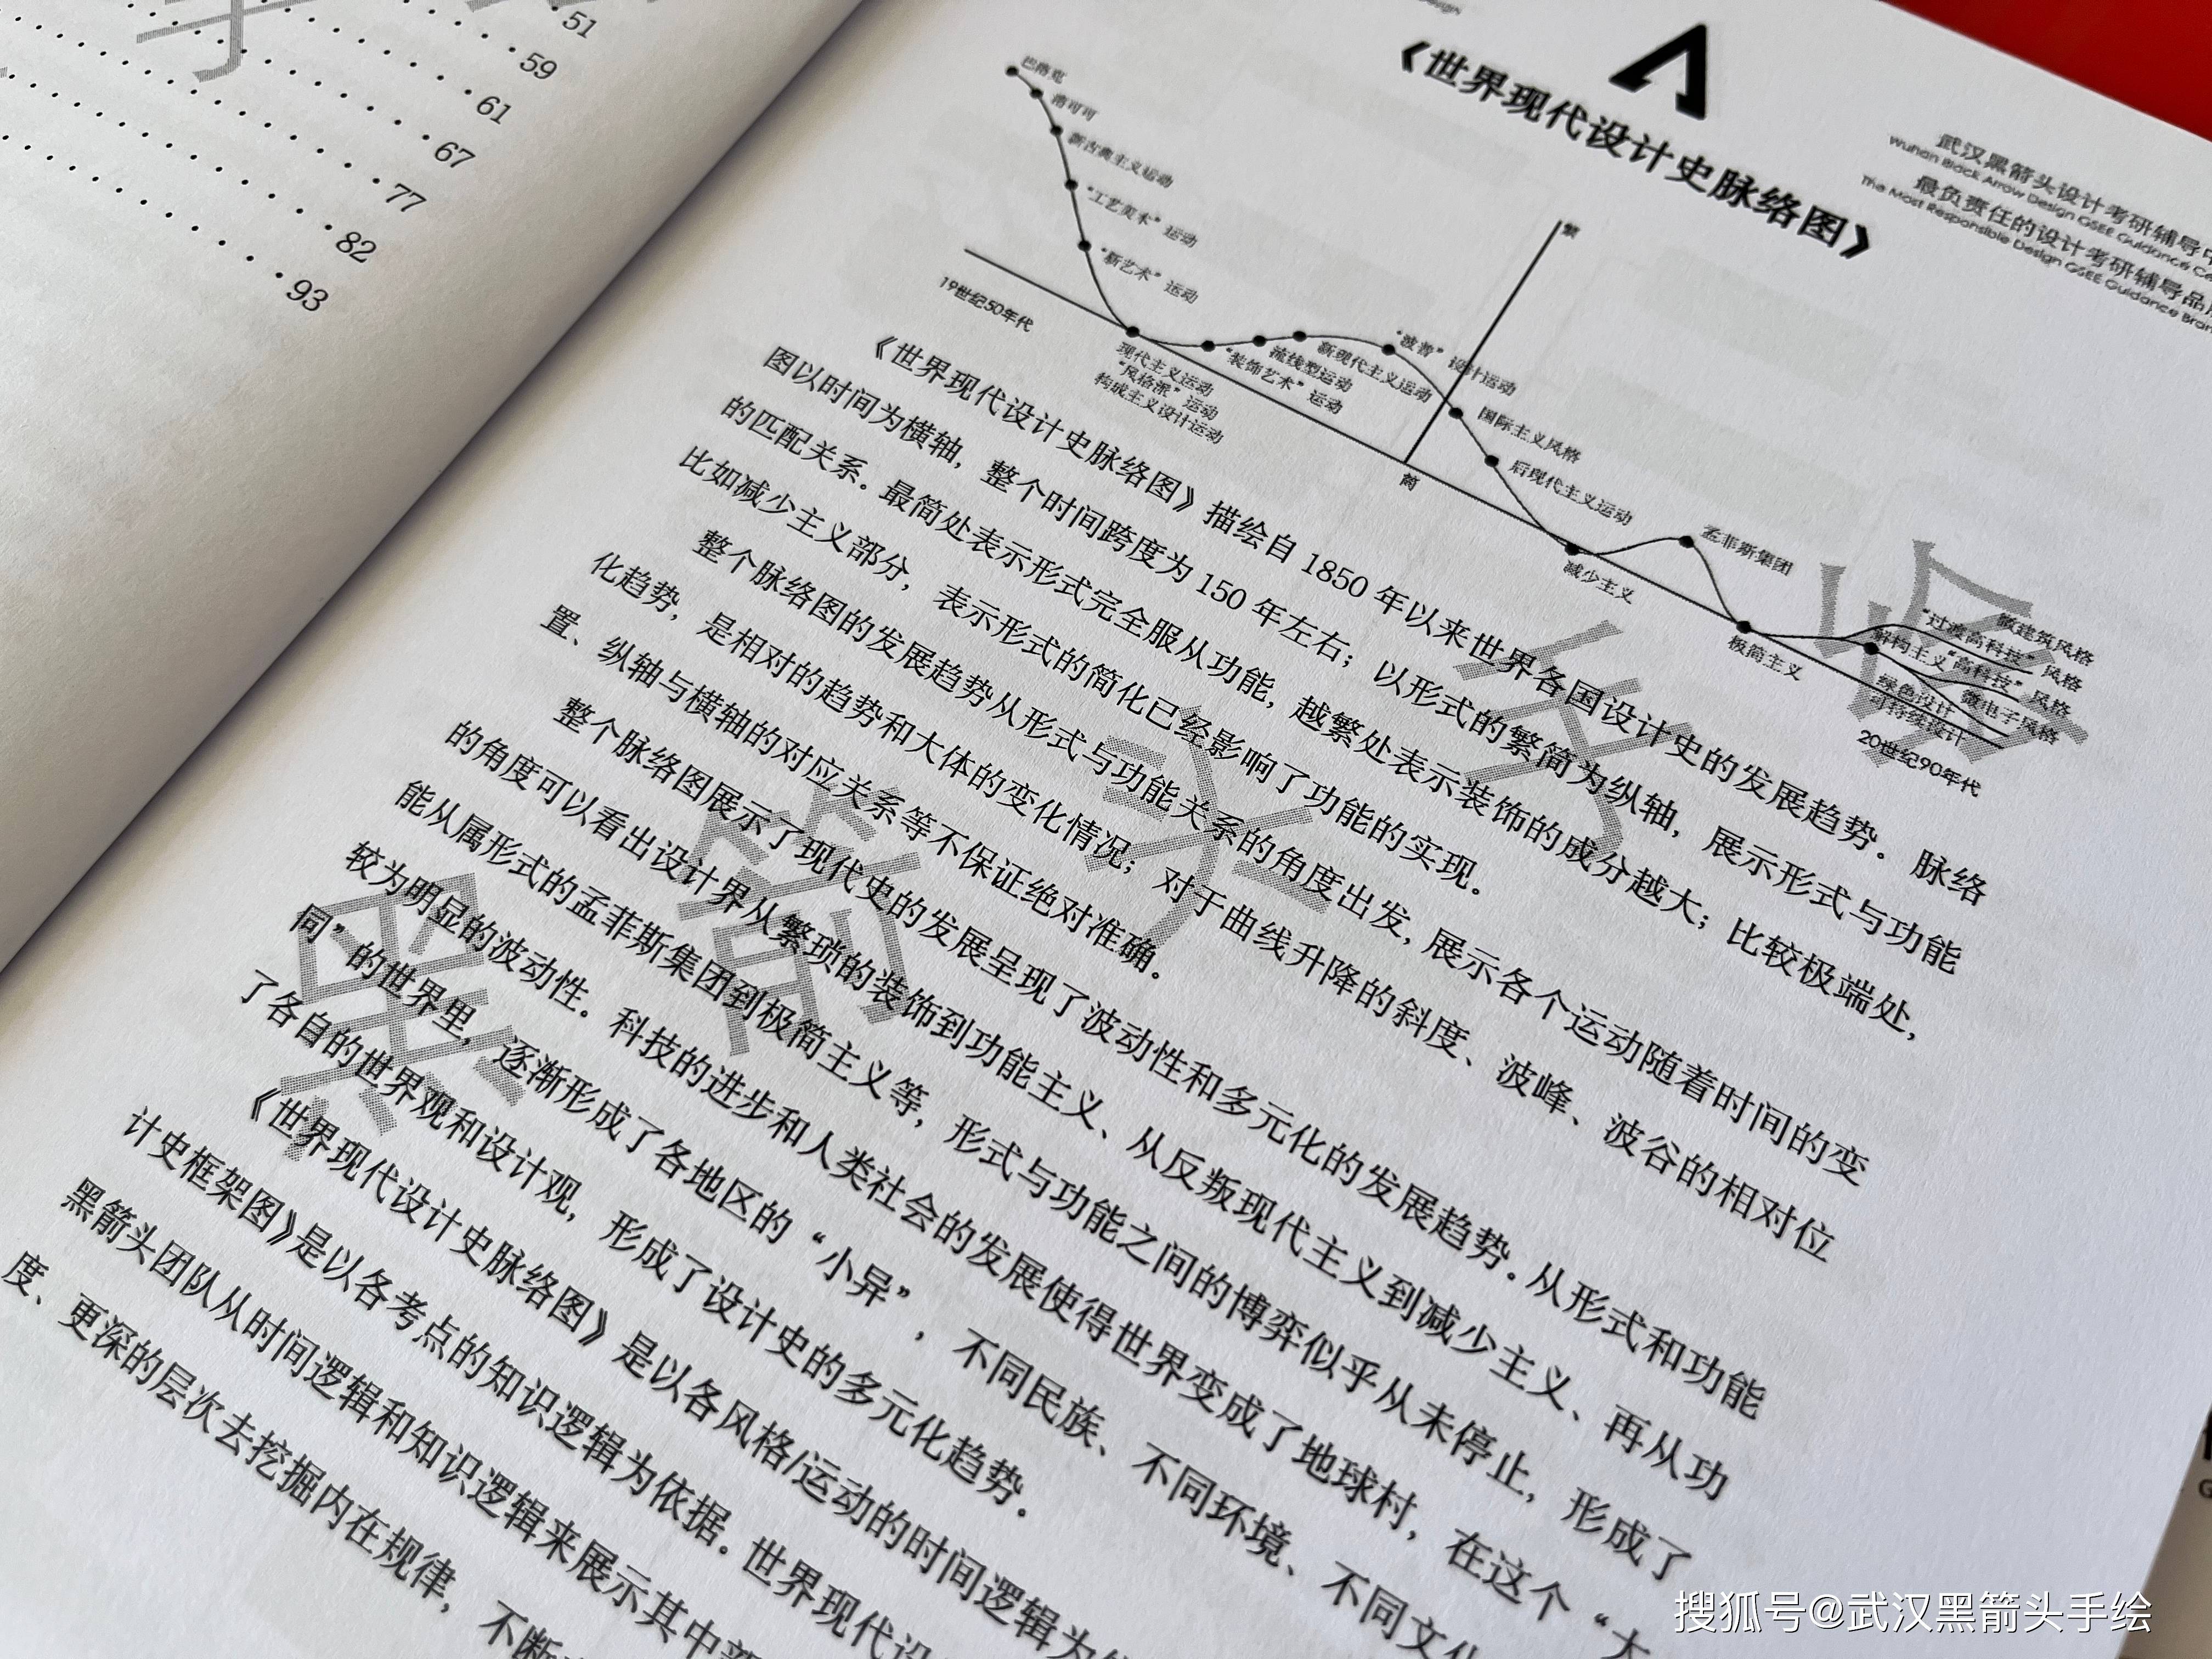 51
59
61
67
77
82
93
《世界现代设计史脉络图》
武汉黑箭头设计考研辅导中
Wuhan Black Arrow Design GSEE Guidance Ce
最负责任的设计考研辅导品
The Most Responsible Design GSEE Guidance Bran
巴洛克
洛可可
新古典主义运动
“工艺美术”运动
“新艺术”运动
19世纪50年代
现代主义运动
“风格派”运动
构成主义设计运动
“装饰艺术”运动
流线型运动
新现代主义运动
“波普”设计运动
繁
简
国际主义风格
后现代主义运动
减少主义
孟菲斯集团
极简主义
微建筑风格
“过渡高科技”风格
解构主义“高科技”风格
绿色设计 微电子风格
可持续设计
20世纪90年代
《世界现代设计史脉络图》描绘自 1850 年以来世界各国设计史的发展趋势。脉络
图以时间为横轴，整个时间跨度为 150 年左右；以形式的繁简为纵轴，展示形式与功能
的匹配关系。最简处表示形式完全服从功能，越繁处表示装饰的成分越大；比较极端处，
比如减少主义部分，表示形式的简化已经影响了功能的实现。
整个脉络图的发展趋势从形式与功能关系的角度出发，展示各个运动随着时间的变
化趋势，是相对的趋势和大体的变化情况；对于曲线升降的斜度、波峰、波谷的相对位
置、纵轴与横轴的对应关系等不保证绝对准确。
整个脉络图展示了现代史的发展呈现了波动性和多元化的发展趋势。从形式和功能
的角度可以看出设计界从繁琐的装饰到功能主义、从反叛现代主义到减少主义、再从功
能从属形式的孟菲斯集团到极简主义等，形式与功能之间的博弈似乎从未停止，形成了
较为明显的波动性。科技的进步和人类社会的发展使得世界变成了地球村，在这个“大
同”的世界里，逐渐形成了各地区的“小异”，不同民族、不同环境、不同文化
了各自的世界观和设计观，形成了设计史的多元化趋势。
《世界现代设计史脉络图》是以各风格/运动的时间逻辑为
计史框架图》是以各考点的知识逻辑为依据。世界现代设
黑箭头团队从时间逻辑和知识逻辑来展示其中
度、更深的层次去挖掘内在规律，不断
搜狐号@武汉黑箭头手绘